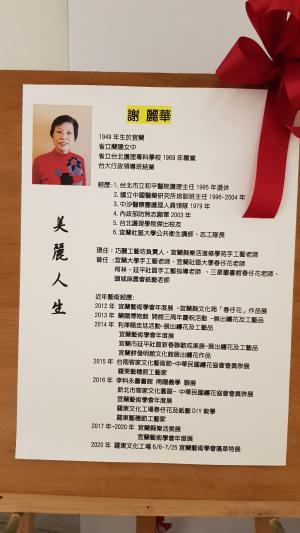 謝 麗華
1949 年生於宜蘭
省立蘭陽女中
省立台北護理專科學校 1969 年畢業
台大行政領導班結業
經歷：1. 台北市立和平醫院護理主任 1995 年退休
2. 國立中國醫藥研究所培訓班主任 1996-2004 年
3. 中沙醫療團護理人員領隊 1979 年
4. 內政部防煞志願軍 2003 年
5. 台北護理學院傑出校友
6. 宜蘭社區大學公共衛生講師、志工隊長
美麗人生
現任：巧麗工藝坊負責人、宜蘭縣樂活進修學苑手工藝老師
曾任：宜蘭大學手工藝老師、宜蘭社區大學春仔花老師
柯林、延平社區手工藝指導老師、三星圖書館春仔花老師、
頭城
近年藝術經歷：
2012 年 宜蘭藝術學會年度展、宜蘭縣文化局「春仔花」作品展
2013 年 蘭陽博物館 開館三周年慶祝活動 -展出纏花及工藝品
2014 年 利澤簡走尪活動-展出纏花及工藝品
宜蘭藝術學會年度展
宜蘭市延平社區新春聯歡成果展-展出纏花及工藝品
宜蘭餅發明館文化館展出纏花作品
2015 年 台南客家文化藝術節-中華民國纏花協會會員聯展
羅東藝穗節工藝家
2016 年 李科永圖書館 南隱義學 聯展
新北市客家文化園區- 中華民國纏花協會會員聯展
宜蘭藝術學會年度展
羅東文化工場春仔花及紙藝 DIY 教學
羅東藝穗節工藝家
2017 年-2020 年 宜蘭縣樂活美展
宜蘭藝術學會年度展
2020 年 羅東文化工場 6/6-7/25 宜蘭藝術學會滿草特展